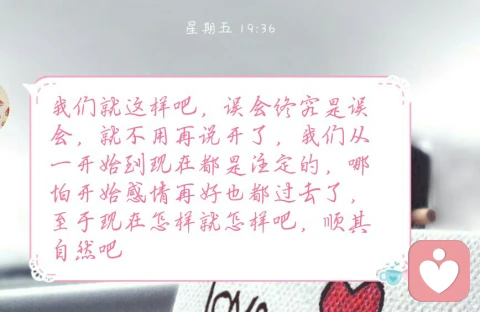 星期五 19:36
我们就这样吧，误会终究是误
会，就不用再说开了，我们从
一开始到现在都是注定的，哪
怕开始感情再好也都过去了，
至于现在怎样就怎样吧，顺其
自然吧
love